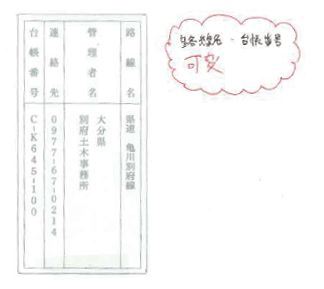 路線名 県道 亀川別府線
管理者名 大分県
別府土木事務所
連絡先 0977-67-0214
台帳番号 C-K645-100
路線名・台帳番号
可変